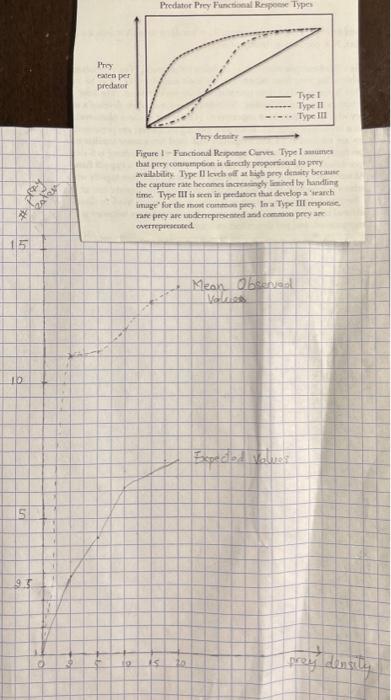 Predator Prey Functional Response Types
Prey
eaten per
predator
Type I
Type II
Type III
Prey density
Figure 1 – Functional Response Curves. Type I assumes
that prey consumption is directly proportional to prey
availability. Type II levels off at high prey density because
the capture rate becomes increasingly limited by handling
time. Type III is seen in predators that develop a 'search
image' for the most common prey. In a Type III response,
rare prey are underrepresented and common prey are
overrepresented.
# prey
eaten
15
Mean Observed
Values
10
Expected Values
5
2.5
0 2 5 10 15 20
prey density